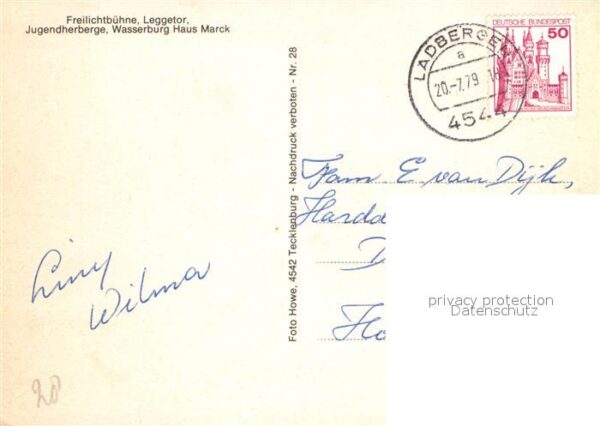 Freilichtbühne, Leggetor,
Jugendherberge, Wasserburg Haus Marck
DEUTSCHE BUNDESPOST
50
LADBERGEN
a
20.-7.79
4544
Foto Howe, 4542 Tecklenburg - Nachdruck verboten - Nr. 28
Fam E van Dijk,
Hardd
D
Ho
Liny
Wilma
20
privacy protection
Datenschutz